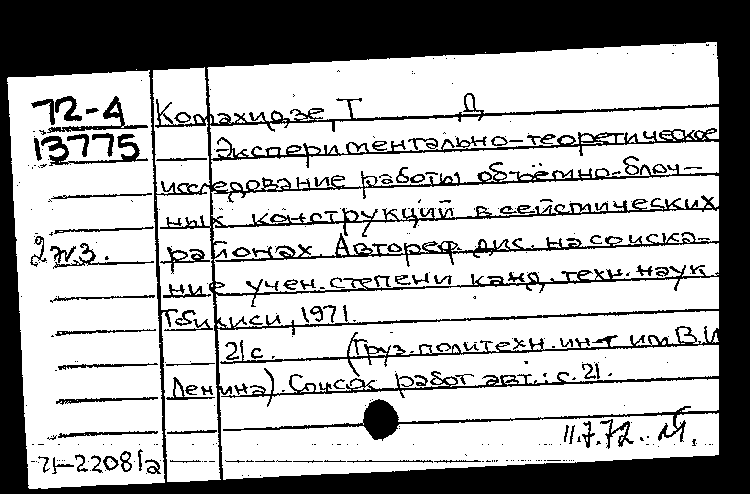 72-4
13775
Комахидзе, Т Д
Экспериментально-теоретическое
исследование работы объёмно-блоч-
ных конструкций в сейсмических
2 экз. районах. Автореф. дис. на соиска-
ние учен. степени канд. техн. наук.
Тбилиси, 1971.
21 с. (Груз. политехн. ин-т им. В.И
Ленина). Список работ авт.: с. 21.
11.7.72.
71-22081а